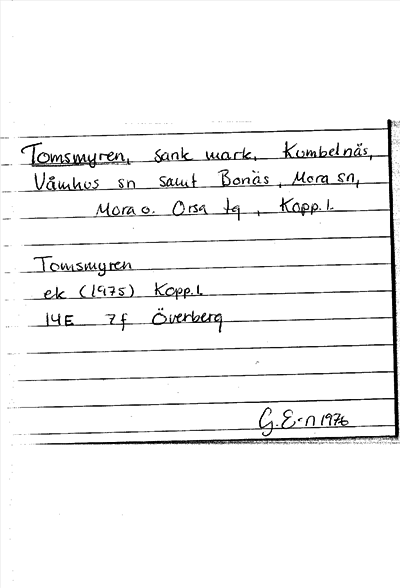 Tomsmyren, sank mark, Kumbelnäs,
Våmhus sn samt Bonäs, Mora sn,
Mora o. Orsa tg, Kopp. l.
Tomsmyren
ek (1975) Kopp. l.
14E 7f Överberg
G. E-n 1976